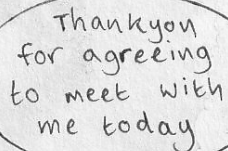 Thankyou
for agreeing
to meet with
me today